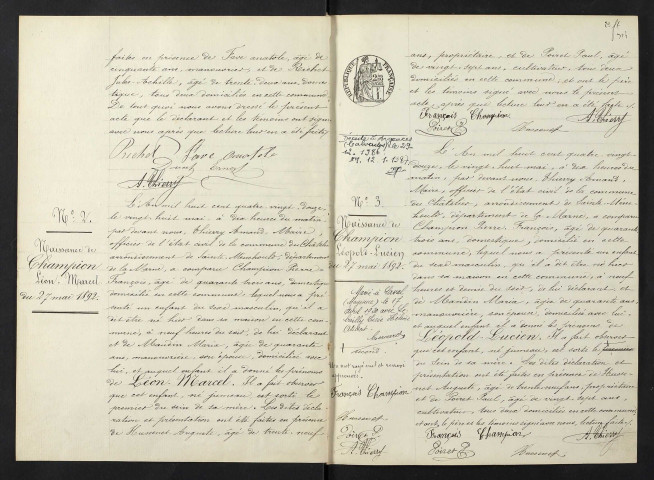 faites en présence de Fave anatole, âgé de
cinquante ans, manouvrier et de Prichot
Jules Achille, âgé de trente deux ans, domes-
tique, tous deux domiciliés en cette commune
De tout quoi nous avons dressé le présent
acte que le déclarant et les témoins ont signé
avec nous après que lecture leur en a été faite
Prichot Fave Anatole
A. Thierry
N° 2.
Naissance de
Champion
Léon Marcel
du 27 mai 1892.
L'An mil huit cent quatre vingt douze
le vingt huit mai, à dix heures du matin
par devant nous, Thierry Armand, Maire,
officier de l'état civil de la commune du Châtelier
arrondissement de Sainte Menehould, département
de la Marne, a comparu Champion Pierre
François, âgé de quarante trois ans, domestique
domicilié en cette commune lequel nous a pré-
senté un enfant du sexe masculin, qu'il a dit
être né hier dans sa maison en cette com-
mune, à neuf heures du soir, de lui déclarant
et de Maria, âgée de quarante
ans, manouvrière, son épouse, domiciliée avec
lui, et auquel enfant il a donné les prénoms
de Léon Marcel. Il a fait observer
que cet enfant, né jumeau est sorti le
premier du sein de sa mère. Les dites décla-
ration et présentation ont été faites en présence
de Auguste, âgé de trente neuf
ans, propriétaire, et de Poiret Paul, âgé
de vingt sept ans, cultivateur, tous deux
domiciliés en cette commune, et ont le père
et les témoins signé avec nous le présent
acte, après que lecture leur en a été faite.
François Champion
Poiret P. A. Thierry
N° 3.
Naissance de
Champion
Léopold-Lucien
du 27 mai 1892.
L'An mil huit cent quatre vingt
douze, le vingt huit mai, à dix heures du
matin, par devant nous, Thierry Armand,
Maire, officier de l'état civil de la commune
du Châtelier, arrondissement de Sainte Mene-
hould, département de la Marne, a comparu
Champion Pierre François, âgé de quarante
trois ans, domestique, domicilié en cette
commune, lequel nous a présenté un enfant
du sexe masculin, qu'il a dit être né hier
dans sa maison en cette commune, à neuf
heures du soir, de lui déclarant et
de Maria, âgée de quarante ans,
manouvrière, son épouse, domiciliée avec lui,
et auquel enfant il a donné les prénoms de
Léopold-Lucien. Il a fait observer
que cet enfant, né jumeau, est sorti le
du sein de sa mère. Les dites déclaration et
présentation ont été faites en présence de
Auguste, âgé de trente neuf ans, propriétaire
et de Poiret Paul, âgé de vingt sept ans,
cultivateur, tous deux domiciliés en cette commune
et ont, le père et les témoins signé avec nous, lecture faite.
François Champion
Poiret P. A. Thierry
François Champion
Poiret P.
A. Thierry